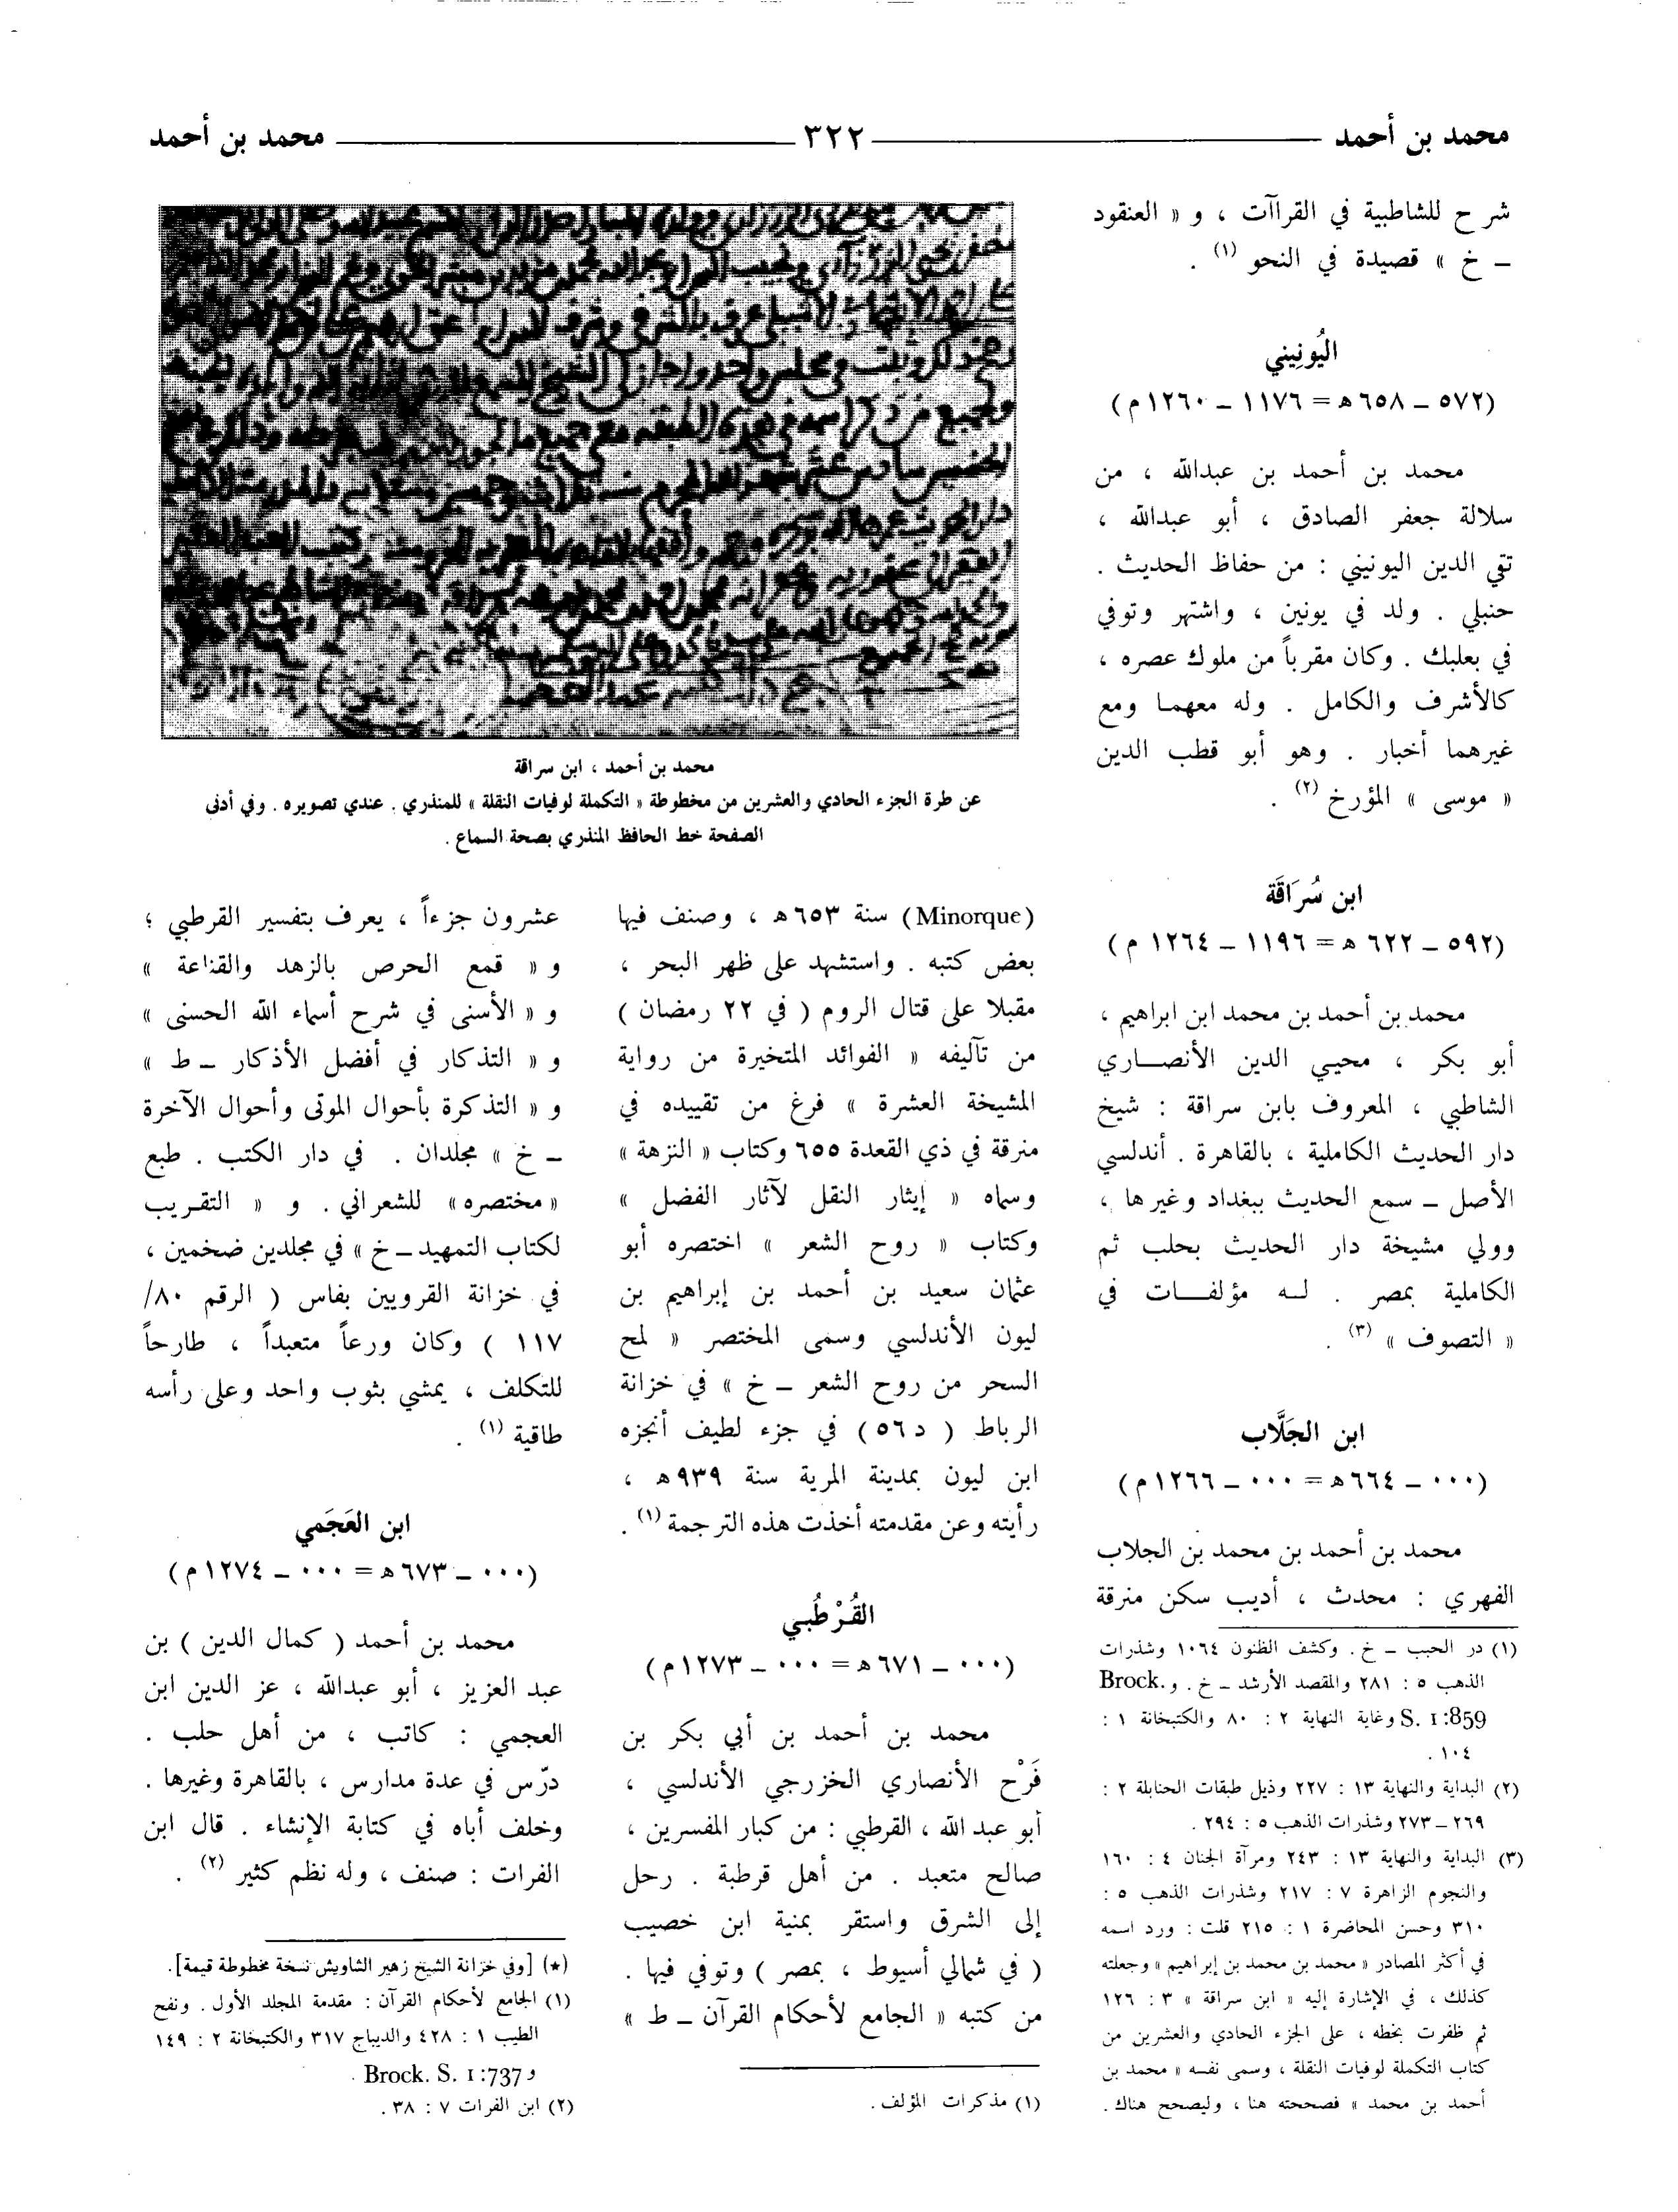 محمد بن أحمد ٣٢٢ محمد بن أحمد
شرح للشاطبية في القراآت ، و « العنقود
ـ خ » قصيدة في النحو (١) .
اليُونِيني
(٥٧٢ ـ ٦٥٨ هـ = ١١٧٦ ـ ١٢٦٠ م)
محمد بن أحمد بن عبدالله ، من
سلالة جعفر الصادق ، أبو عبدالله ،
تقي الدين اليونيني : من حفاظ الحديث .
حنبلي . ولد في يونين ، واشتهر وتوفي
في بعلبك . وكان مقرباً من ملوك عصره ،
كالأشرف والكامل . وله معهما ومع
غيرهما أخبار . وهو أبو قطب الدين
« موسى » المؤرخ (٢) .
ابن سُرَاقَة
(٥٩٢ ـ ٦٢٢ هـ = ١١٩٦ ـ ١٢٦٤ م)
محمد بن أحمد بن محمد ابن ابراهيم ،
أبو بكر ، محيي الدين الأنصاري
الشاطبي ، المعروف بابن سراقة : شيخ
دار الحديث الكاملية ، بالقاهرة . أندلسي
الأصل ـ سمع الحديث ببغداد وغيرها ،
وولي مشيخة دار الحديث بحلب ثم
الكاملية بمصر . له مؤلفات في
« التصوف » (٣) .
ابن الجَلَّاب
(٠٠٠ ـ ٦٦٤ هـ = ٠٠٠ ـ ١٢٦٦ م)
محمد بن أحمد بن محمد بن الجلاب
الفهري : محدث ، أديب سكن منرقة
(١) در الحبب ـ خ . وكشف الظنون ١٠٦٤ وشذرات
الذهب ٥ : ٢٨١ والمقصد الأرشد ـ خ . و Brock.
S. I:859 وغاية النهاية ٢ : ٨٠ والكتبخانة ١ :
١٠٤ .
(٢) البداية والنهاية ١٣ : ٢٢٧ وذيل طبقات الحنابلة ٢ :
٢٦٩ ـ ٢٧٣ وشذرات الذهب ٥ : ٢٩٤ .
(٣) البداية والنهاية ١٣ : ٢٤٣ ومرآة الجنان ٤ : ١٦٠
والنجوم الزاهرة ٧ : ٢١٧ وشذرات الذهب ٥ :
٣١٠ وحسن المحاضرة ١ : ٢١٥ قلت : ورد اسمه
في أكثر المصادر « محمد بن محمد بن إبراهيم » وجعلته
كذلك ، في الإشارة إليه « ابن سراقة » ٣ : ١٢٦
ثم ظفرت بخطه ، على الجزء الحادي والعشرين من
كتاب التكملة لوفيات النقلة ، وسمى نفسه « محمد بن
أحمد بن محمد » فصححته هنا ، وليصحح هناك .
محمد بن أحمد ، ابن سراقة
عن طرة الجزء الحادي والعشرين من مخطوطة « التكملة لوفيات النقلة » للمنذري . عندي تصويره . وفي أدنى
الصفحة خط الحافظ المنذري بصحة السماع .
(Minorque) سنة ٦٥٣ هـ ، وصنف فيها
بعض كتبه . واستشهد على ظهر البحر ،
مقبلا على قتال الروم ( في ٢٢ رمضان )
من تآليفه « الفوائد المتخيرة من رواية
المشيخة العشرة » فرغ من تقييده في
منرقة في ذي القعدة ٦٥٥ وكتاب « النزهة »
وسماه « إيثار النقل لآثار الفضل »
وكتاب « روح الشعر » اختصره أبو
عثمان سعيد بن أحمد بن إبراهيم بن
ليون الأندلسي وسمى المختصر « لمح
السحر من روح الشعر ـ خ » في خزانة
الرباط ( د ٥٦ ) في جزء لطيف أنجزه
ابن ليون بمدينة المرية سنة ٩٣٩ هـ ،
رأيته وعن مقدمته أخذت هذه الترجمة (١) .
القُرْطُبي
(٠٠٠ ـ ٦٧١ هـ = ٠٠٠ ـ ١٢٧٣ م)
محمد بن أحمد بن أبي بكر بن
فَرْح الأنصاري الخزرجي الأندلسي ،
أبو عبد الله ، القرطبي : من كبار المفسرين ،
صالح متعبد . من أهل قرطبة . رحل
إلى الشرق واستقر بمنية ابن خصيب
( في شمالي أسيوط ، بمصر ) وتوفي فيها .
من كتبه « الجامع لأحكام القرآن ـ ط »
(١) مذكرات المؤلف .
عشرون جزءاً ، يعرف بتفسير القرطبي ؛
و « قمع الحرص بالزهد والقناعة »
و « الأسنى في شرح أسماء الله الحسنى »
و « التذكار في أفضل الأذكار ـ ط »
و « التذكرة بأحوال الموتى وأحوال الآخرة
ـ خ » مجلدان . في دار الكتب . طبع
« مختصره » للشعراني . و « التقريب
لكتاب التمهيد ـ خ » في مجلدين ضخمين ،
في خزانة القرويين بفاس ( الرقم ٨٠/
١١٧ ) وكان ورعاً متعبداً ، طارحاً
للتكلف ، يمشي بثوب واحد وعلى رأسه
طاقية (١) .
ابن العَجَمي
(٠٠٠ ـ ٦٧٣ هـ = ٠٠٠ ـ ١٢٧٤ م)
محمد بن أحمد ( كمال الدين ) بن
عبد العزيز ، أبو عبدالله ، عز الدين ابن
العجمي : كاتب ، من أهل حلب .
درّس في عدة مدارس ، بالقاهرة وغيرها .
وخلف أباه في كتابة الإنشاء . قال ابن
الفرات : صنف ، وله نظم كثير (٢) .
(★) [وفي خزانة الشيخ زهير الشاويش نسخة مخطوطة قيمة].
(١) الجامع لأحكام القرآن : مقدمة المجلد الأول . ونفح
الطيب ١ : ٤٢٨ والديباج ٣١٧ والكتبخانة ٢ : ١٤٩
و Brock. S. I:737 .
(٢) ابن الفرات ٧ : ٣٨ .